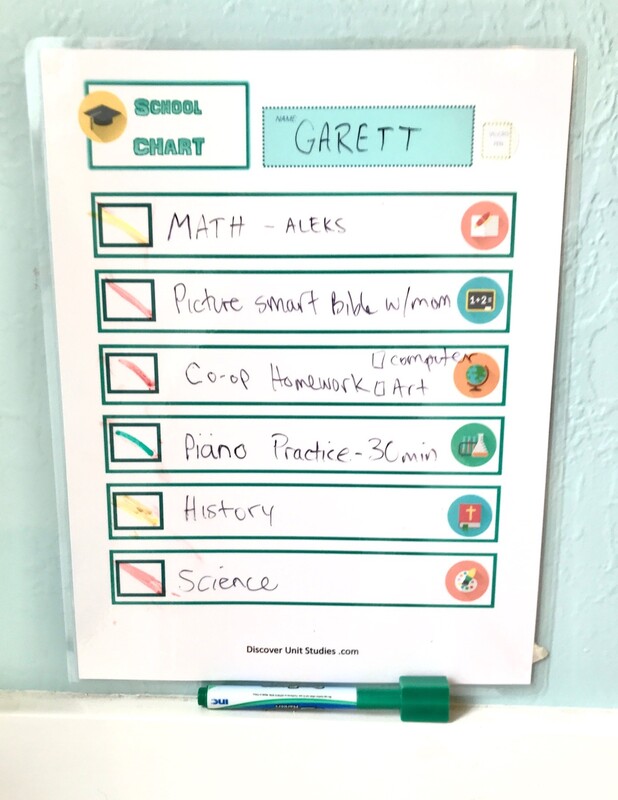 SCHOOL
CHART
NAME
GARETT
MATH - ALEKS
1+2=
Picture smart Bible w/mom
□ computer
Co-op Homework □ Art
Piano Practice - 30 min
History
Science
Discover Unit Studies .com
INC